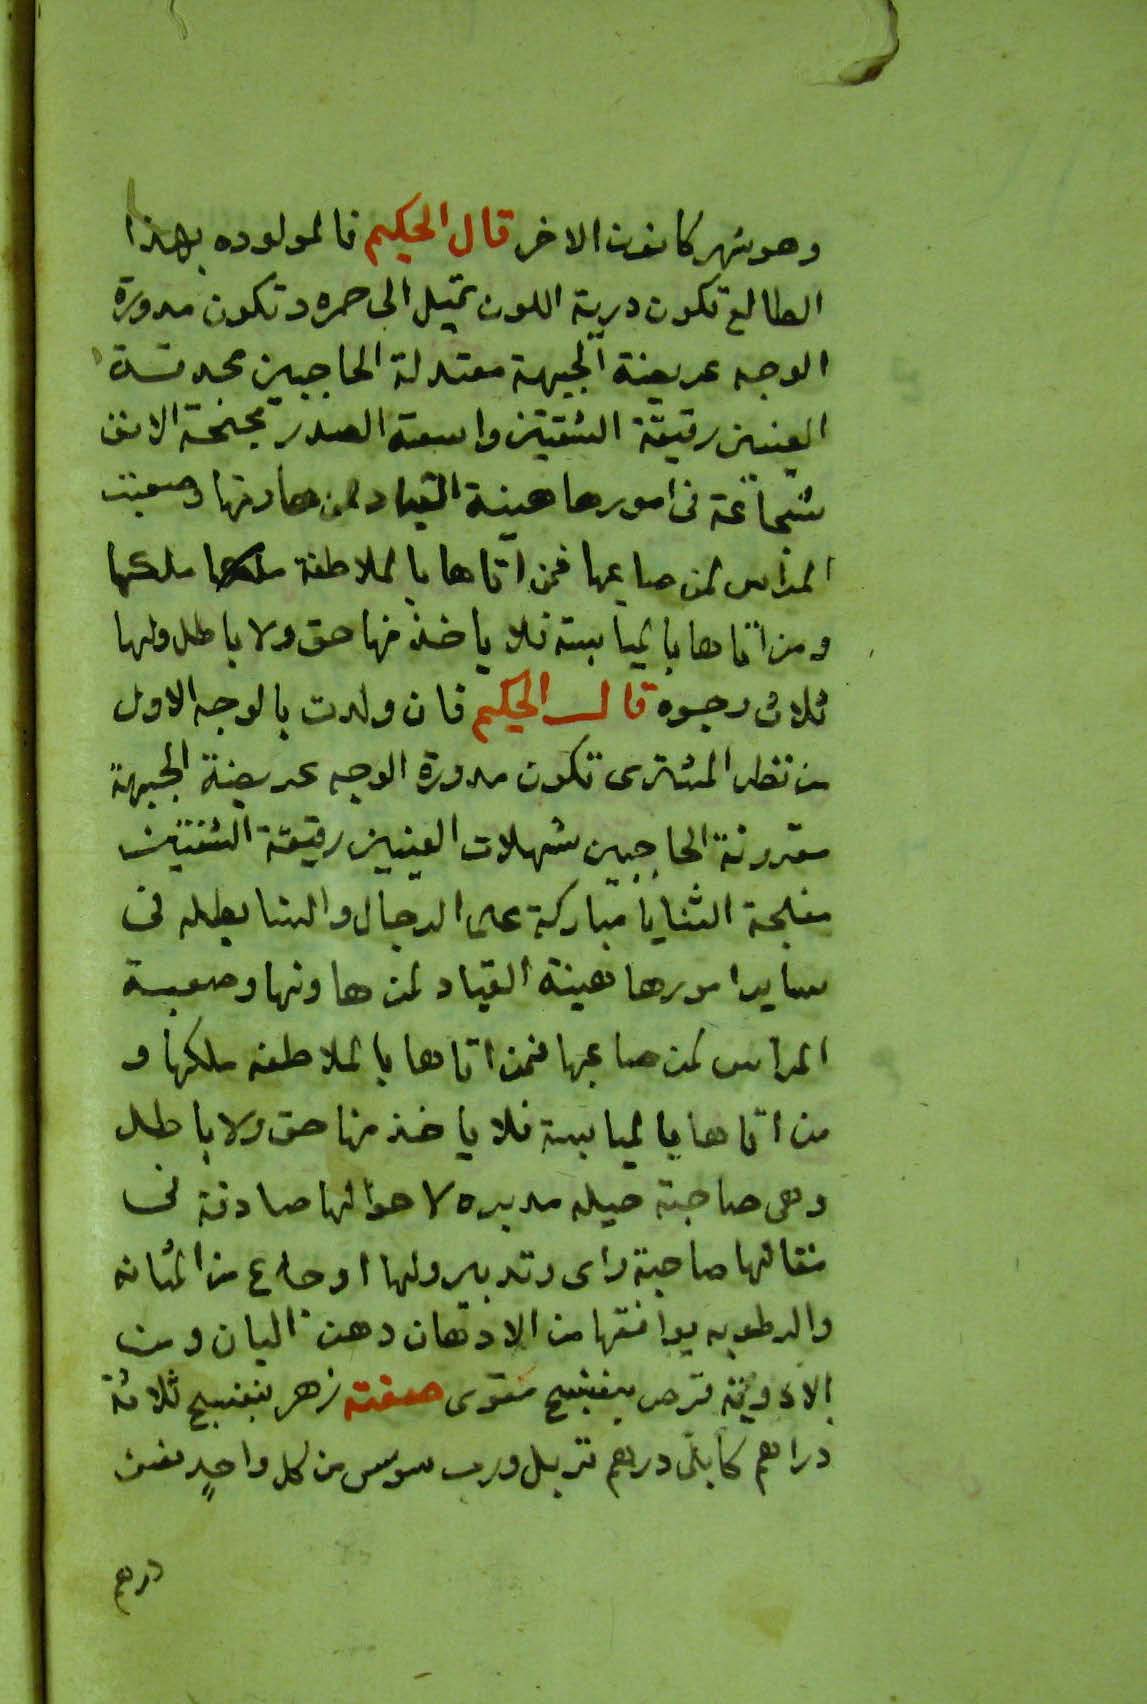 وهو شهر كانون الاخر قال الحكيم فالمولوده بهذا
الطالع تكون درية اللون تميل الى حمره وتكون مدورة
الوجه عريضة الجبهة معتدلة الحاجبين محدقة
العينين رقيقة الشفتين واسعة الصدر مجنحة الانف
شجاعة فى امورها هينة القياد لمن هاونها وصعبت
المراس لمن صاعبها فمن اتاها بالملاطفة ملكها ملكها
ومن اتاها باليابسة فلا ياخذ منها حق ولا باطل ولها
ثلاث وجوه قال الحكيم فان ولدت بالوجه الاول
من نظر المشترى تكون مدورة الوجه عريضة الجبهة
مقرونة الحاجبين شهلات العينين رقيقة الشفتين
مفلجة الثنايا مباركة على الرجال والنسا بطله فى
ساير امورها هينة القياد لمن هاونها وصعبة
المراس لمن صاعبها فمن اتاها بالملاطفه ملكها و
من اتاها باليابسة فلا ياخذ منها حق ولا باطل
وهى صاحبة حيله مدبره لاحوالها صادقة فى
مقالتها صاحبة راى وتدبير ولها اوجاع من المثانه
والرطوبه يوافقها من الادهان دهن البان ومن
الادوية قرص بنفسج مقوى صفته زهر بنفسج ثلاثة
دراهم كابلى درهم تربل ورب سوس من كل واحدٍ نصف
درهم